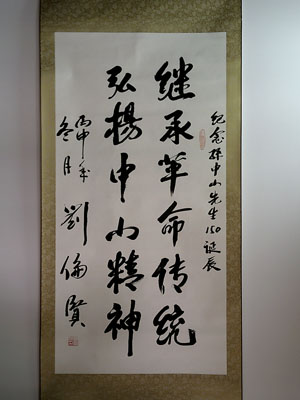 纪念孙中山先生150诞辰
继承革命传统
弘楊中山精神
丙申年
冬月
劉倫賢